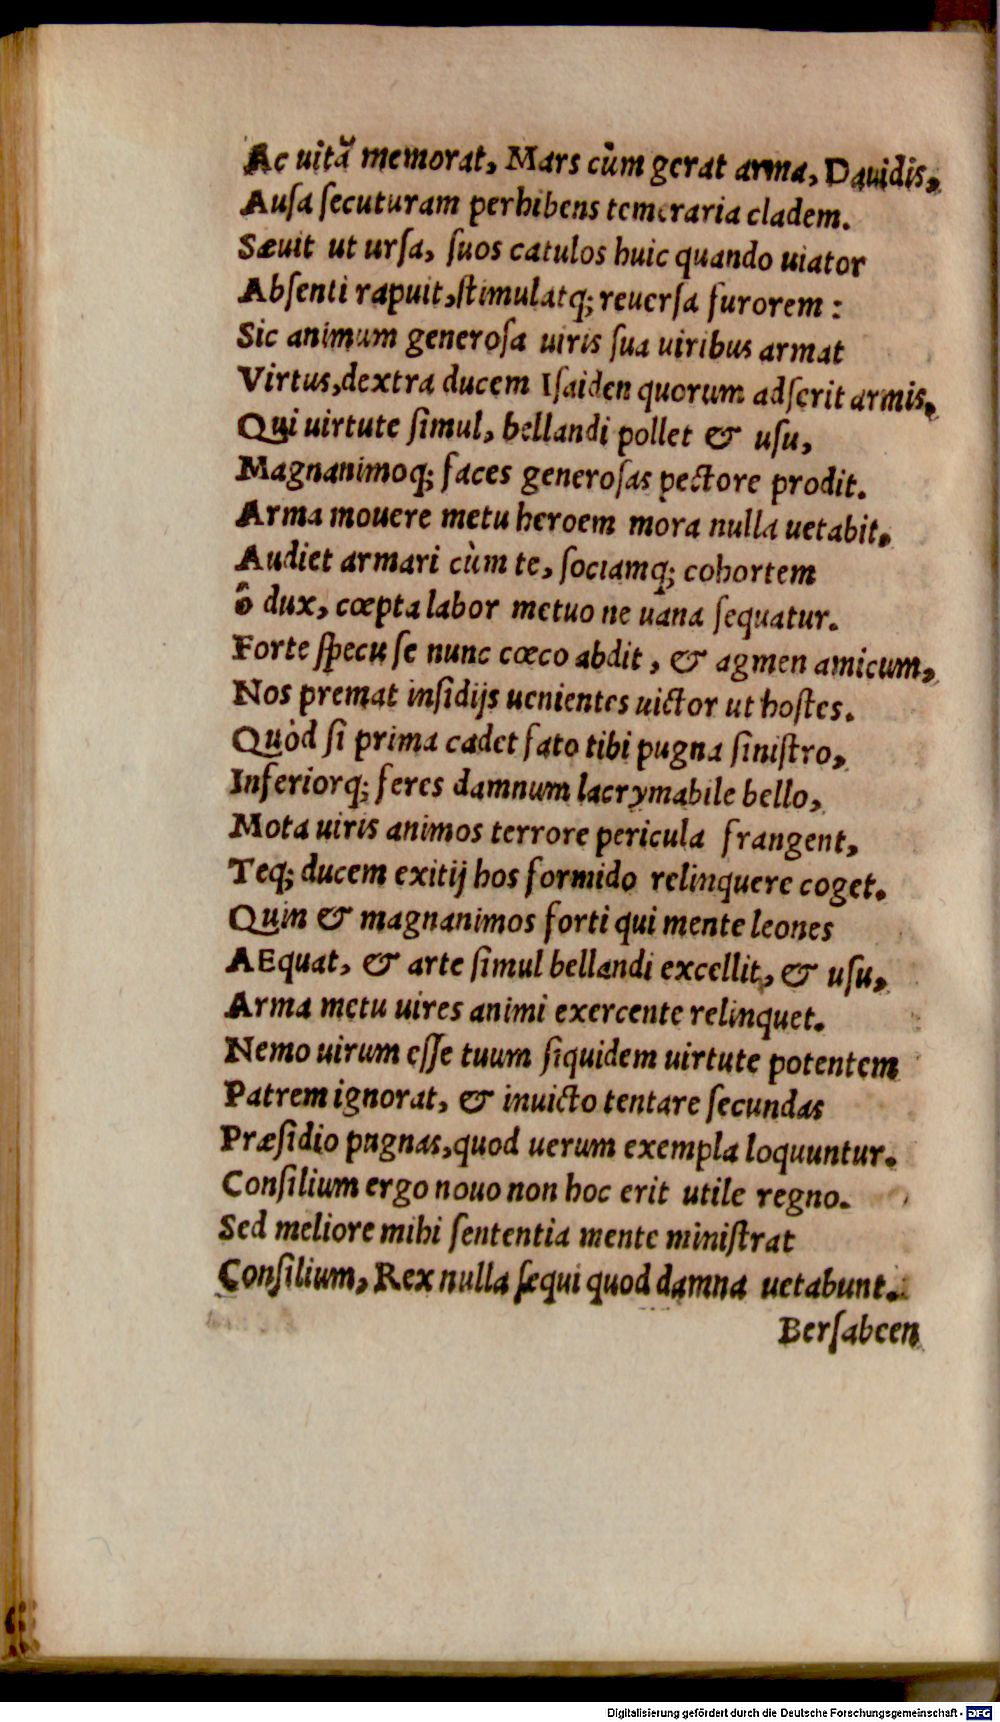 Ac uitã memorat, Mars cùm gerat arma, Dauidis,
Auſa ſecuturam perhibens temeraria cladem.
Sæuit ut urſa, ſuos catulos huic quando uiator
Abſenti rapuit, ſtimulatq; reuerſa furorem:
Sic animum generoſa uiris ſua uiribus armat
Virtus, dextra ducem Iſaiden quorum adſerit armis,
Qui uirtute ſimul, bellandi pollet & uſu,
Magnanimoq; faces generoſas pectore prodit.
Arma mouere metu heroem mora nulla uetabit,
Audiet armari cùm te, ſociamq; cohortem
ô dux, cœpta labor metuo ne uana ſequatur.
Forte ſpecu ſe nunc cœco abdit, & agmen amicum,
Nos premat inſidijs uenientes uictor ut hoſtes.
Quòd ſi prima cadet fato tibi pugna ſiniſtro,
Inferiorq; feres damnum lacrymabile bello,
Mota uiris animos terrore pericula frangent,
Teq; ducem exitij hos formido relinquere coget.
Quin & magnanimos forti qui mente leones
AEquat, & arte ſimul bellandi excellit, & uſu,
Arma metu uires animi exercente relinquet.
Nemo uirum eſſe tuum ſiquidem uirtute potentem
Patrem ignorat, & inuicto tentare ſecundas
Præſidio pugnas, quod uerum exempla loquuntur.
Conſilium ergo nouo non hoc erit utile regno.
Sed meliore mihi ſententia mente miniſtrat
Conſilium, Rex nulla ſequi quod damna uetabunt.
Berſabeen
Digitalisierung gefördert durch die Deutsche Forschungsgemeinschaft - DFG